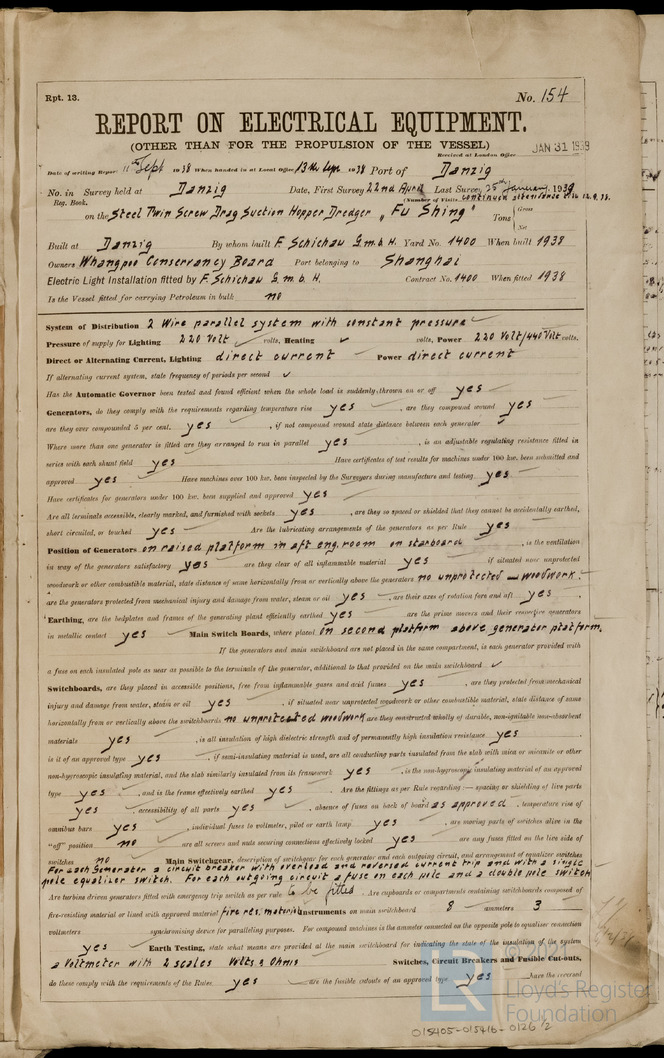 Rpt. 13.
No. 154
REPORT ON ELECTRICAL EQUIPMENT.
(OTHER THAN FOR THE PROPULSION OF THE VESSEL)
Received at London Office JAN 31 1939
Date of writing Report Sept 1938 When handed in at Local Office 13th Sept. 1938 Port of Danzig
No. in Survey held at Danzig Date, First Survey 22nd April Last Survey 25th January, 1939
Reg. Book. (Number of Visits
on the Steel Twin Screw Drag Suction Hopper Dredger "Fu Shing" Tons { Gross Net
Built at Danzig By whom built F. Schichau G.m.b.H. Yard No. 1400 When built 1938
Owners Whangpoo Conservancy Board Port belonging to Shanghai
Electric Light Installation fitted by F. Schichau G.m.b.H. Contract No. 1400 When fitted 1938
Is the Vessel fitted for carrying Petroleum in bulk no
System of Distribution 2 Wire parallel system with constant pressure
Pressure of supply for Lighting 220 Volt volts, Heating volts, Power 220 Volt/440 Volt volts.
Direct or Alternating Current, Lighting direct current Power direct current
If alternating current system, state frequency of periods per second
Has the Automatic Governor been tested and found efficient when the whole load is suddenly thrown on or off yes
Generators, do they comply with the requirements regarding temperature rise yes, are they compound wound yes
are they over compounded 5 per cent. yes, if not compound wound state distance between each generator
Where more than one generator is fitted are they arranged to run in parallel yes, is an adjustable regulating resistance fitted in
series with each shunt field yes Have certificates of test results for machines under 100 kw. been submitted and
approved yes Have machines over 100 kw. been inspected by the Surveyors during manufacture and testing yes
Have certificates for generators under 100 kw. been supplied and approved yes
Are all terminals accessible, clearly marked, and furnished with sockets yes, are they so spaced or shielded that they cannot be accidentally earthed,
short circuited, or touched yes Are the lubricating arrangements of the generators as per Rule yes
Position of Generators on raised platform in aft eng. room on starboard, is the ventilation
in way of the generators satisfactory yes are they clear of all inflammable material yes if situated near unprotected
woodwork or other combustible material, state distance of same horizontally from or vertically above the generators no unprotected woodwork.
are the generators protected from mechanical injury and damage from water, steam or oil yes, are their axes of rotation fore and aft yes.
Earthing, are the bedplates and frames of the generating plant efficiently earthed yes are the prime movers and their respective generators
in metallic contact yes Main Switch Boards, where placed on second platform above generator platform.
If the generators and main switchboard are not placed in the same compartment, is each generator provided with
a fuse on each insulated pole as near as possible to the terminals of the generator, additional to that provided on the main switchboard
Switchboards, are they placed in accessible positions, free from inflammable gases and acid fumes yes, are they protected from mechanical
injury and damage from water, steam or oil yes, if situated near unprotected woodwork or other combustible material, state distance of same
horizontally from or vertically above the switchboards no unprotected woodwork are they constructed wholly of durable, non-ignitable non-absorbent
materials yes, is all insulation of high dielectric strength and of permanently high insulation resistance yes
is it of an approved type yes, if semi-insulating material is used, are all conducting parts insulated from the slab with mica or micanite or other
non-hygroscopic insulating material, and the slab similarly insulated from its framework yes, is the non-hygroscopic insulating material of an approved
type yes, and is the frame effectively earthed yes Are the fittings as per Rule regarding:— spacing or shielding of live parts
yes, accessibility of all parts yes, absence of fuses on back of board as approved, temperature rise of
omnibus bars yes, individual fuses to voltmeter, pilot or earth lamp yes, are moving parts of switches alive in the
"off" position no are all screws and nuts securing connections effectively locked yes are any fuses fitted on the live side of
switches no Main Switchgear, description of switchgear for each generator and each outgoing circuit, and arrangement of equalizer switches
For each Generator a circuit breaker with overload and reversed current trip and with a single
pole equaliser switch. For each outgoing circuit a fuse on each pole and a double pole switch
Are turbine driven generators fitted with emergency trip switch as per rule to be fitted Are cupboards or compartments containing switchboards composed of
fire-resisting material or lined with approved material fire res. material Instruments on main switchboard 8 ammeters 3
voltmeters synchronising device for paralleling purposes. For compound machines is the ammeter connected on the opposite pole to equaliser connection
yes Earth Testing, state what means are provided at the main switchboard for indicating the state of the insulation of the system
a Voltmeter with 2 scales Volts & Ohms Switches, Circuit Breakers and Fusible Cut-outs,
do these comply with the requirements of the Rules yes are the fusible cutouts of an approved type yes have the reversed
© 2021
Lloyd's Register
Foundation
015405-015416-0126 1/2